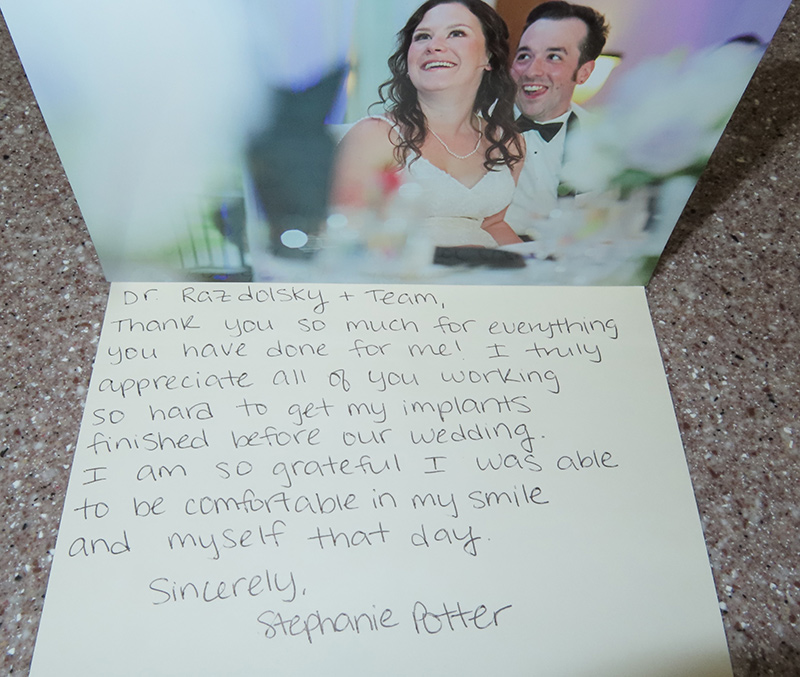 Dr. Razdolsky + Team,
Thank you so much for everything
you have done for me! I truly
appreciate all of you working
so hard to get my implants
finished before our wedding.
I am so grateful I was able
to be comfortable in my smile
and myself that day.
Sincerely,
Stephanie Potter